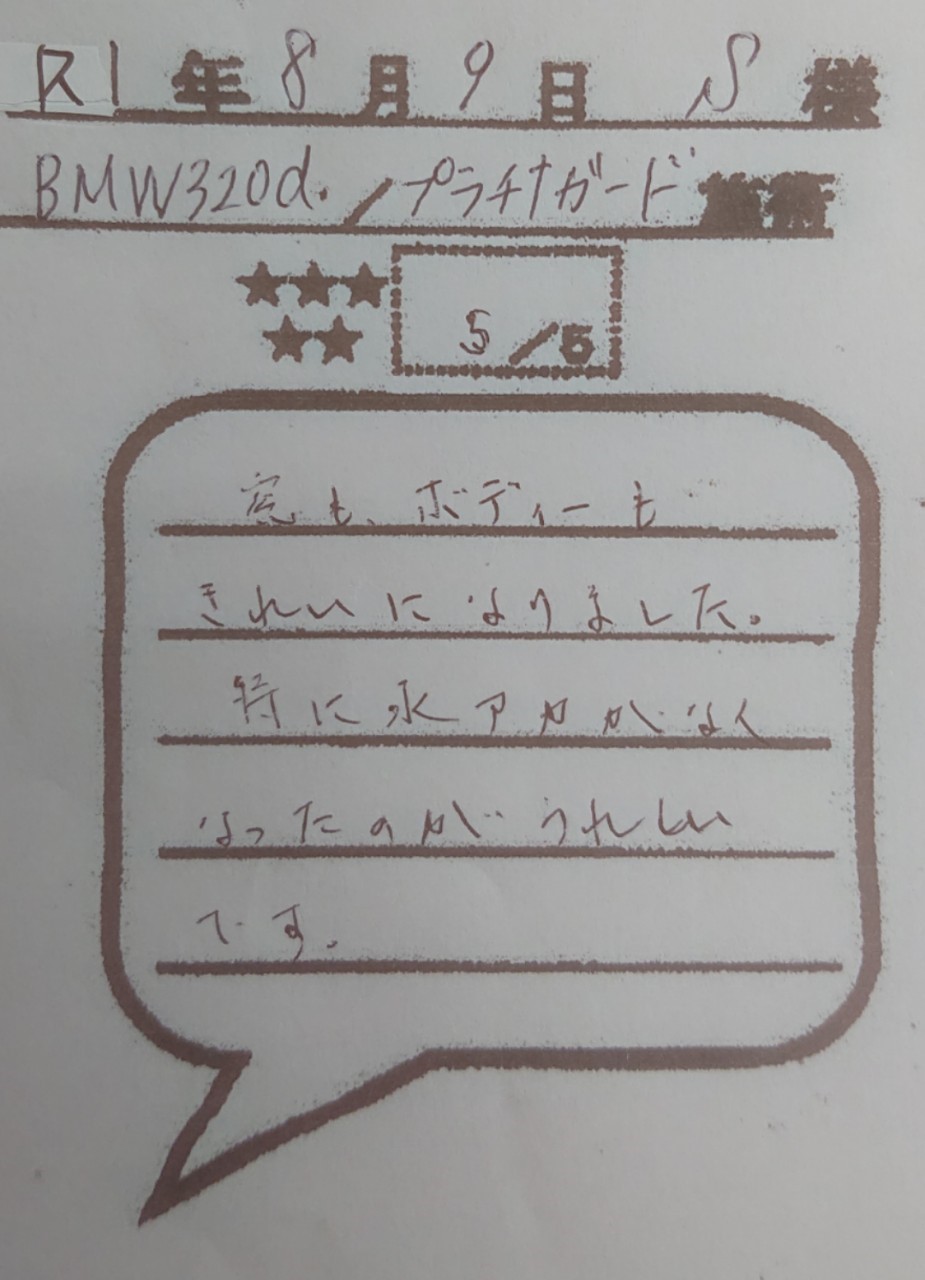 R1年8月9日 S様
BMW320d./プラチナガード施術
★★★
★★
5/5
窓も、ボディーも
きれいになりました。
特に水アカがなく
なったのがうれしい
です.